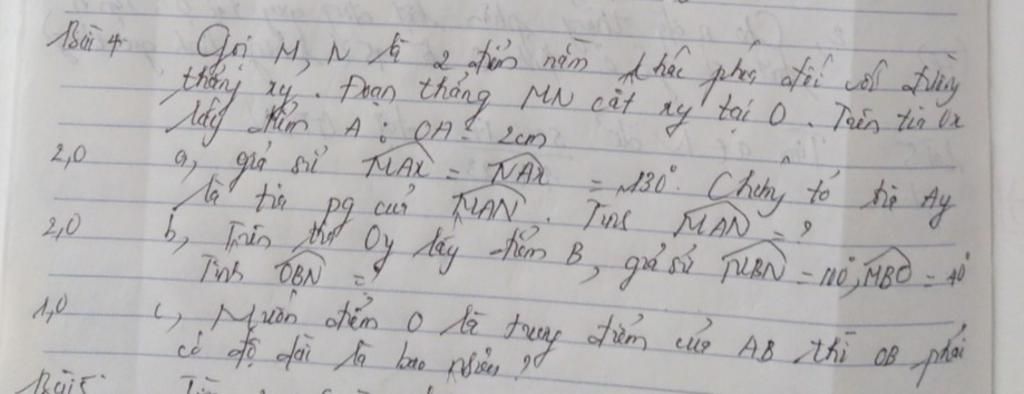 Bài 4 Gọi M, N là 2 điểm nằm khác phía đối với đường
thẳng xy. Đoạn thẳng MN cắt xy tại O. Trên tia Ox
lấy điểm A : OA = 2cm
2,0 a, giả sử MAx = NAx = 130°. Chứng tỏ tia Ay
là tia pg của MAN. Tính MAN = ?
2,0 b, Trên tia Oy lấy điểm B, giả sử MBN = 110°, MBO = 40°
Tính OBN = ?
1,0 c, Muốn điểm O là trung điểm của AB thì OB phải
có độ dài là bao nhiêu?
Bài 5